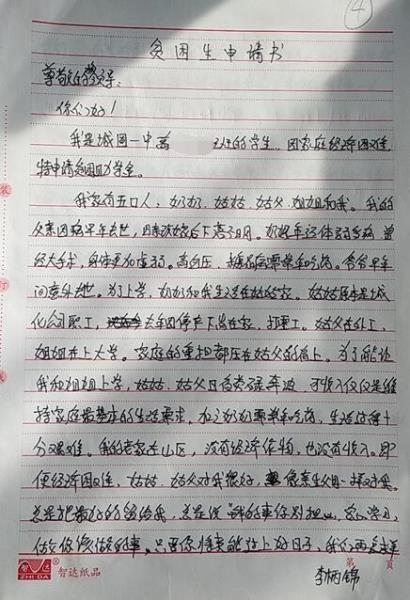 ④
贫困生申请书
尊敬的领导:
你们好!
我是城固一中高 班的学生,因家庭经济困难,
特申请贫困助学金。
我家有五口人:奶奶、姑姑、姑父、姐姐和我。我的
父亲因病早年去世,母亲改嫁后下落不明。奶奶年迈体弱多病,曾
经大手术,身体更加虚弱。高血压、糖尿病要常年吃药,爷爷早年
间意外去世。为了上学,奶奶和我生活在姑姑家。姑姑原本是城
化公司职工,去年因停产下岗在家,打零工。姑父在外打工,
姐姐在上大学。家庭的重担都压在姑父的肩上。为了能让
我和姐姐上学,姑姑、姑父日夜劳碌奔波,可收入仅仅是维
持家庭最基本的生活要求,加之奶奶要常年吃药,生活过得十
分艰难。我的老家在山区,没有经济作物,也没有收入。即
便经济困难,姑姑、姑父对我很好,像亲生父母一样对我。
总是把最好的留给我,总是说"钱的事你别担心,安心学习,
做你该做的事。只要你将来能过上好日子,我们再苦
智达 ZHI DA 智达纸品
第 页
李炳锦
装
订